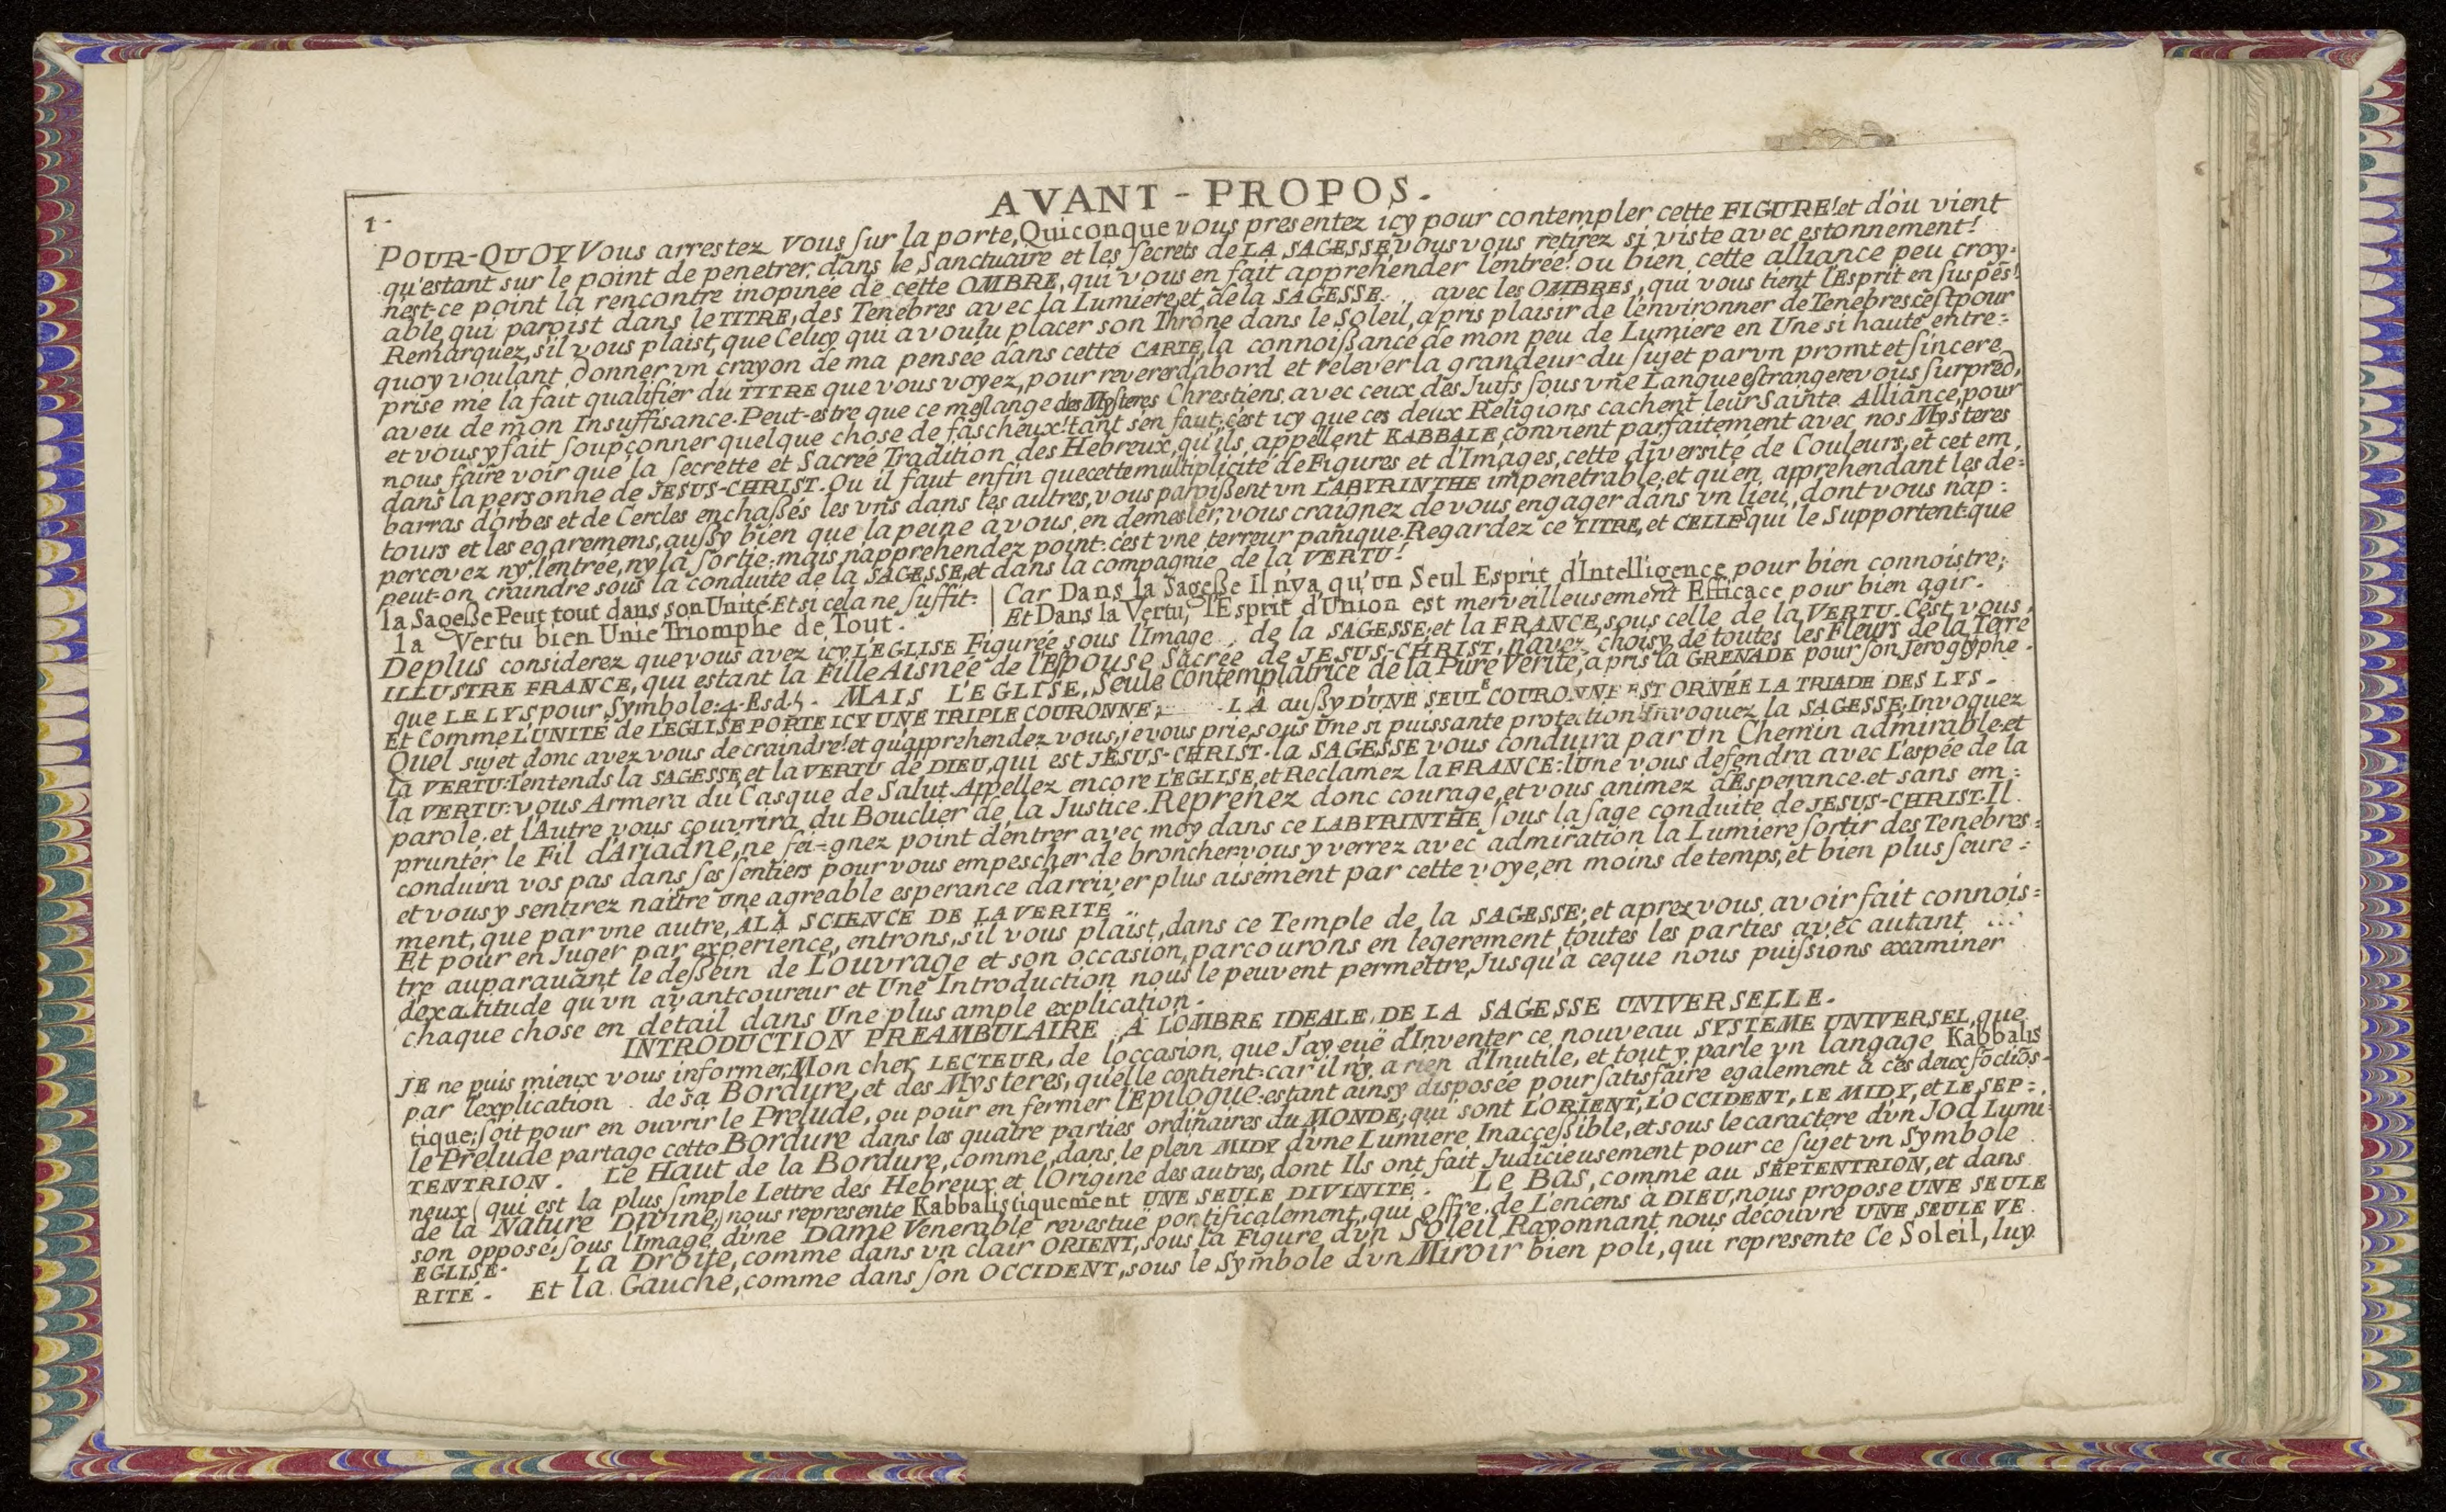 AVANT - PROPOS.
1.
POUR-QUOY Vous arrestez vous sur la porte, Quiconque vous presentez icy pour contempler cette FIGURE! et d'où vient
qu'estant sur le point de penetrer dans le Sanctuaire et les secrets de LA SAGESSE, vous vous retirez si viste avec estonnement!
n'est-ce point la rencontre inopinée de cette OMBRE, qui vous en fait apprehender l'entrée! ou bien cette alliance peu croy:
able, qui paroist dans le TITRE, des Tenebres avec la Lumiere, et de la SAGESSE avec les OMBRES, qui vous tient l'Esprit en suspẽs!
Remarquez, s'il vous plaist, que Celuy qui a voulu placer son Thrône dans le Soleil, a pris plaisir de l'environner de Tenebres: c'est pour
quoy voulant donner vn crayon de ma pensée dans cette CARTE, la connoißance de mon peu de Lumiere en Une si haute entre:
prise me la fait qualifier du TITRE que vous voyez, pour reverer d'abord et relever la grandeur du sujet par vn promt et sincere
aveu de mon Insuffisance. Peut-estre que ce meslange des Mysteres Chrestiens, avec ceux des Juifs sous vne Langue estrangere vous surprẽd,
et vous y fait soupçonner quelque chose de fascheux! tant s'en faut; c'est icy que ces deux Religions cachent leur Sainte Alliance, pour
nous faire voir que la secrette et Sacrée Tradition des Hebreux, qu'ils appellent KABBALE, convient parfaitement avec nos Mysteres
dans la personne de JESUS-CHRIST. Ou il faut enfin que cette multiplicité de Figures et d'Images, cette diversité de Couleurs, et cet em,
barras d'orbes et de Cercles enchaßés les vns dans les autres, vous paroißent vn LABYRINTHE impenetrable; et qu'en apprehendant les de:
tours et les egaremens, außy bien que la peine à vous en demesler, vous craignez de vous engager dans vn lieu, dont vous n'ap:
percevez ny l'entrée, ny la sortie: mais n'apprehendez point: c'est vne terreur panique. Regardez ce TITRE, et CELLES qui le Supportent: que
peut-on craindre sous la conduite de la SAGESSE, et dans la compagnie de la VERTU!
la Sageße Peut tout dans son Unité. Et si cela ne suffit: | Car Dans la Sageße Il n'y a qu'un Seul Esprit d'Intelligence pour bien connoistre;
la Vertu bien Unie Triomphe de Tout. | Et Dans la Vertu, l'Esprit d'Union est merveilleusement Efficace pour bien agir.
Deplus considerez que vous avez icy L'EGLISE Figurée sous l'Image de la SAGESSE; et la FRANCE, sous celle de la VERTU. C'est vous,
ILLUSTRE FRANCE, qui estant la Fille Aisnée de l'Espouse Sacrée de JESUS-CHRIST, n'avez choisy de toutes les Fleurs de la Terre
que LE LYS pour Symbole: 4. Esd. 5. MAIS L'EGLISE, Seule Contemplatrice de la Pure Verité, a pris la GRENADE pour son Jeroglyphe.
Et Comme L'UNITE de L'EGLISE PORTE ICY UNE TRIPLE COURONNE; LÀ außy D'UNE SEULE COURONNE EST ORNÉE LA TRIADE DES LYS.
Quel sujet donc avez vous de craindre! et qu'apprehendez vous, je vous prie, sous Une si puissante protection! Invoquez la SAGESSE; Invoquez
la VERTU: J'entends la SAGESSE, et la VERTU de DIEU, qui est JESUS-CHRIST. la SAGESSE vous conduira par Un Chemin admirable: et
la VERTU: vous Armera du Casque de Salut. Appellez encore L'EGLISE, et Reclamez la FRANCE: l'Une vous defendra avec L'espée de la
parole; et l'Autre vous couvrira du Bouclier de la Justice. Reprenez donc courage, et vous animez d'Esperance. et sans em:
prunter le Fil d'Ariadne, ne fei=gnez point d'entrer avec moy dans ce LABYRINTHE sous la sage conduite de JESUS-CHRIST. Il
conduira vos pas dans ses sentiers pour vous empescher de broncher: vous y verrez avec admiration la Lumiere sortir des Tenebres:
et vous y sentirez naître une agreable esperance d'arriver plus aisément par cette voye, en moins de temps, et bien plus seure:
ment, que par vne autre, A LA SCIENCE DE LA VERITE.
Et pour en Juger par experience, entrons, s'il vous plaist, dans ce Temple de la SAGESSE; et aprez vous avoir fait connois:
tre auparauant le deßein de L'ouvrage et son occasion, parcourons en legerement toutes les parties avec autant
d'exatitude qu'vn avantcoureur et Une Introduction nous le peuvent permettre, Jusqu'à ce que nous puissions examiner
chaque chose en détail dans Une plus ample explication.
INTRODUCTION PREAMBULAIRE À L'OMBRE IDEALE DE LA SAGESSE UNIVERSELLE.
JE ne puis mieux vous informer, Mon cher LECTEUR, de l'occasion que J'ay euë d'Inventer ce nouveau SYSTEME UNIVERSEL, que
par l'explication de sa Bordure, et des Mysteres, qu'elle contient: car il n'y a rien d'Inutile, et tout y parle vn langage Kabbalis
tique; soit pour en ouvrir le Prelude, ou pour en fermer l'Epilogue: estant ainsy disposée pour satisfaire egalement à ces deux foctiõs.
le Prelude partage cette Bordure dans les quatre parties ordinaires du MONDE, qui sont L'ORIENT, L'OCCIDENT, LE MIDY, et LE SEP:
TENTRION. Le Haut de la Bordure, comme dans le plein MIDY d'vne Lumiere Inacceßible, et sous le caractere d'vn Jod Lumi
neux (qui est la plus simple Lettre des Hebreux et l'Origine des autres, dont Ils ont fait Judicieusement pour ce sujet vn Symbole
de la Nature Divine,) nous represente Kabbalistiquement UNE SEULE DIVINITÉ. Le Bas, comme au SEPTENTRION, et dans
son opposé, sous l'Image d'vne Dame Venerable revestuë pontificalement, qui offre de L'encens à DIEU, nous propose UNE SEULE
EGLISE. La Droite, comme dans vn clair ORIENT, sous la Figure d'vn Soleil Rayonnant nous découvre UNE SEULE VE
RITÉ. Et la Gauche, comme dans son OCCIDENT, sous le Symbole d'vn Miroir bien poli, qui represente Ce Soleil, luy